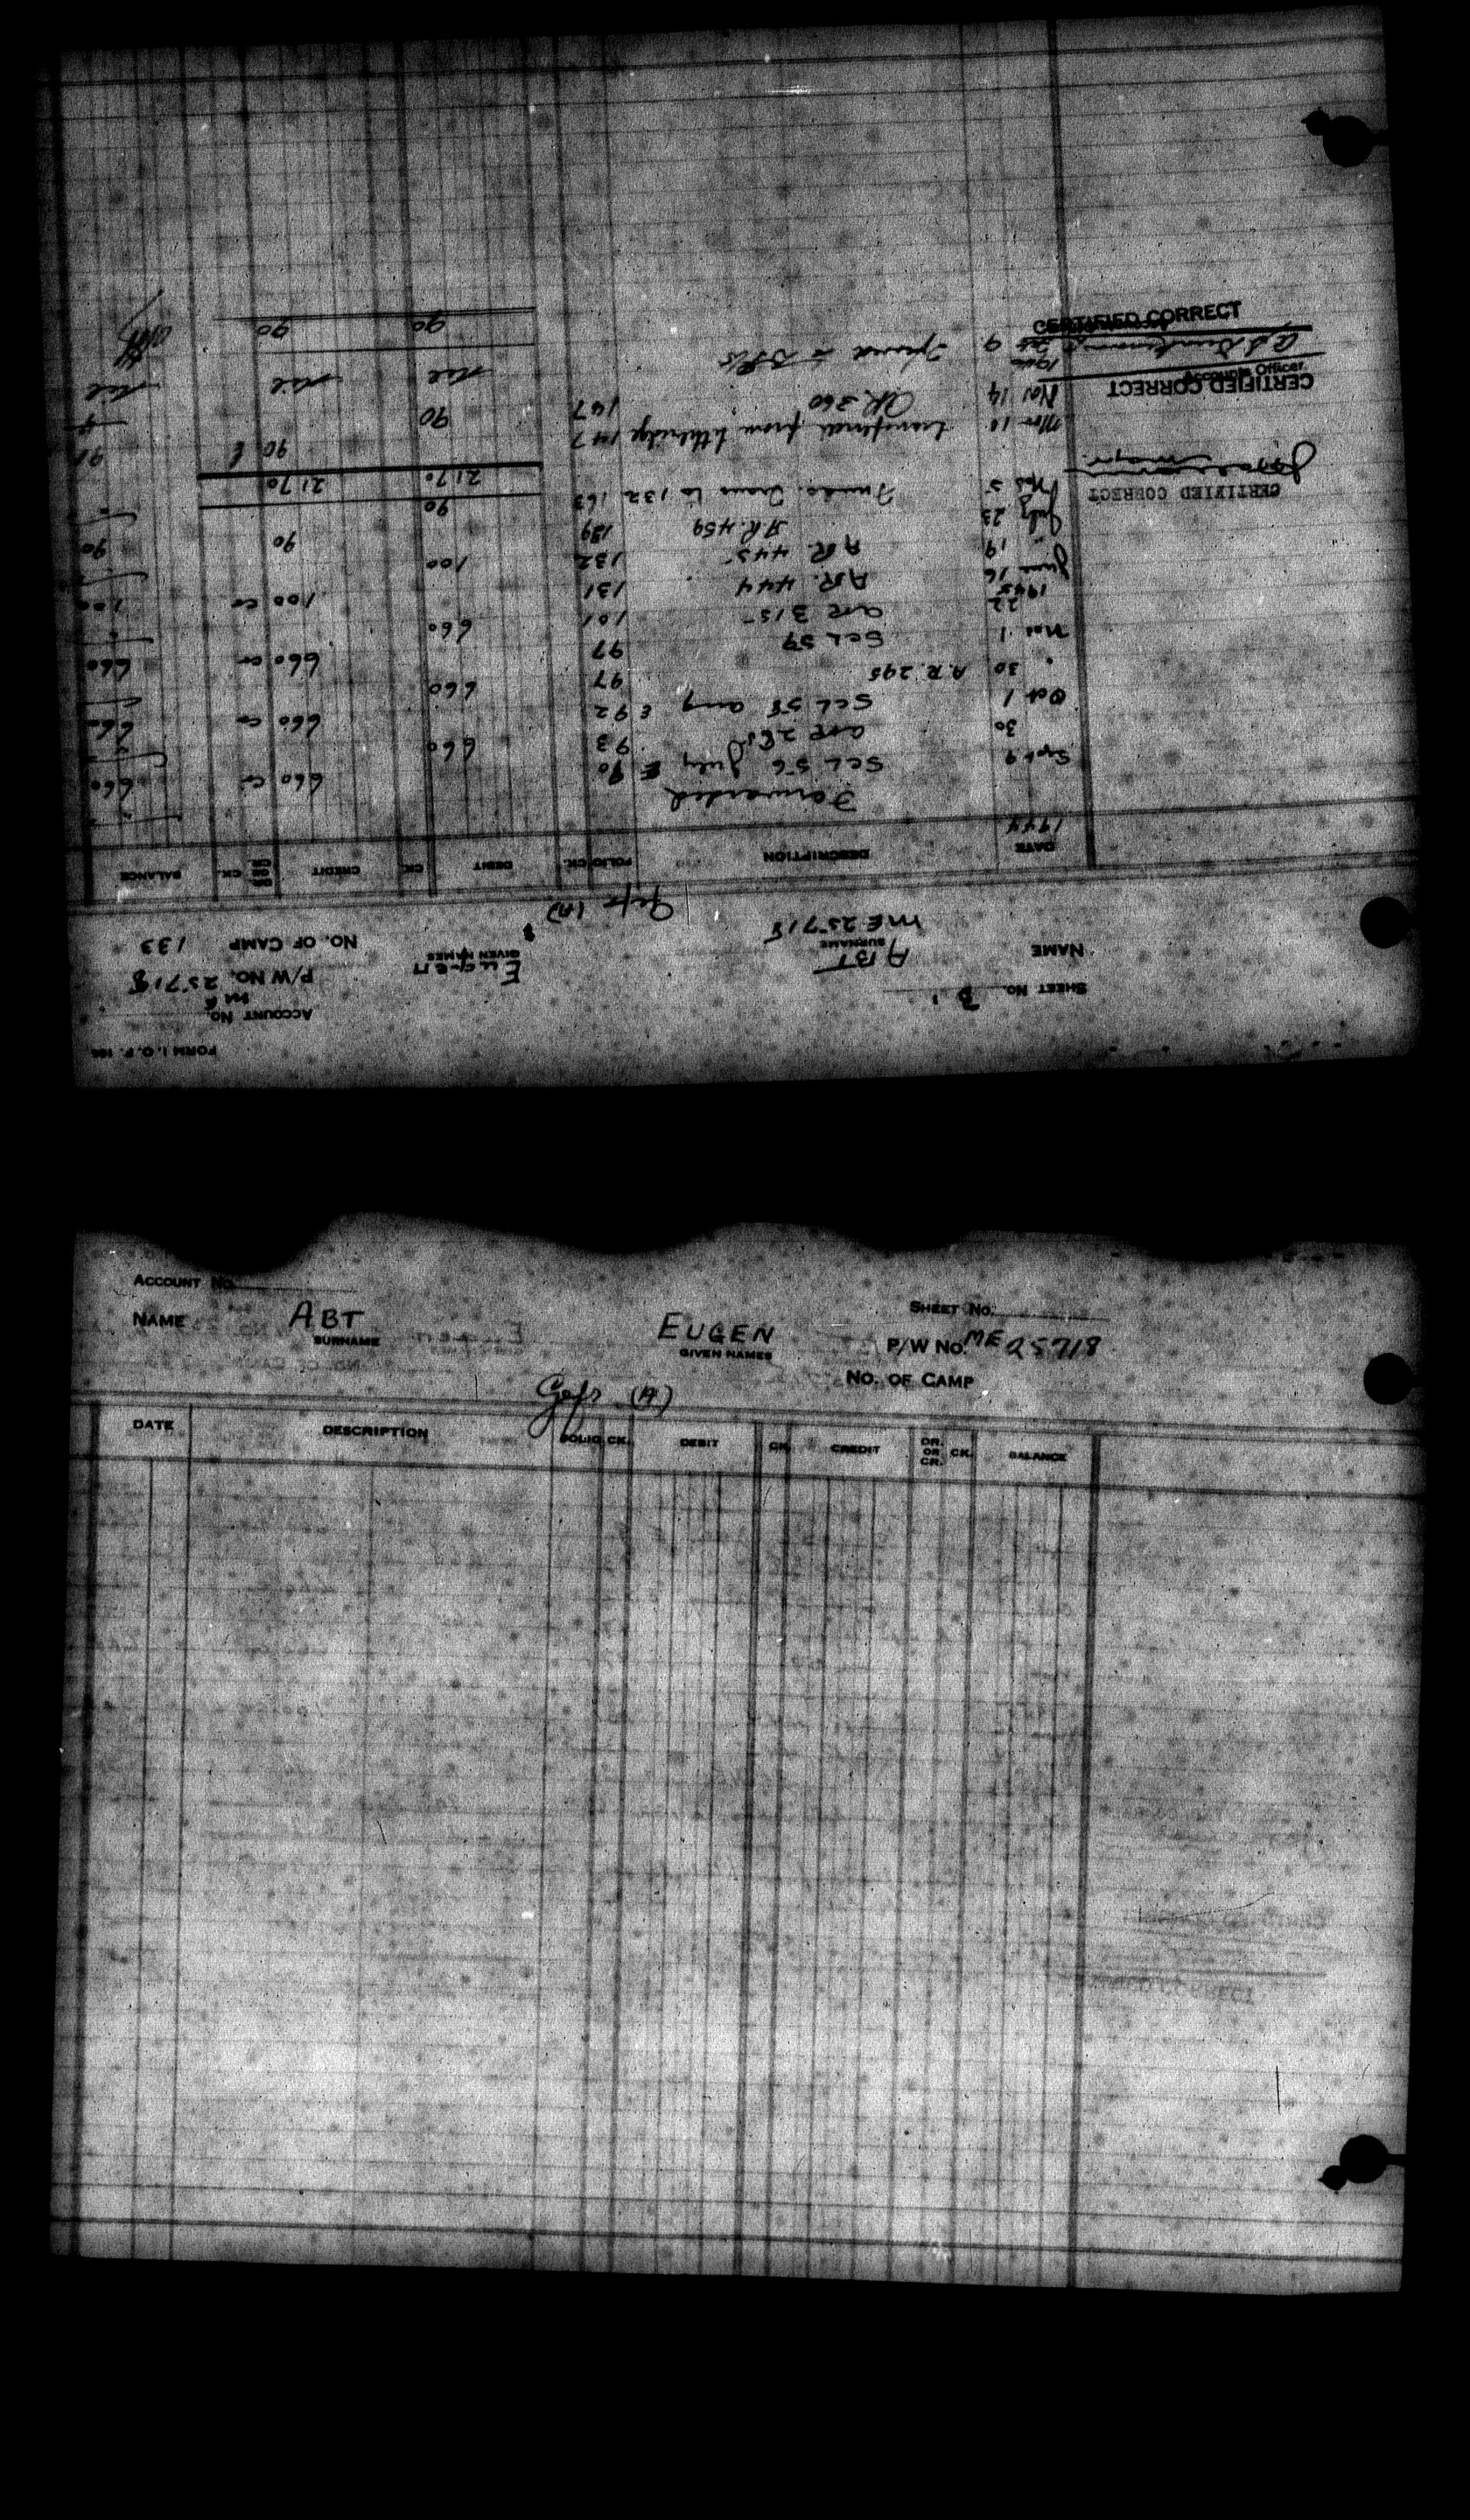 FORM I. O. P. 106
ACCOUNT No.
SHEET No. B 1
P/W No. ME 25718
NAME ABT EUGEN
SURNAME GIVEN NAMES
NO. OF CAMP 133
ME 25718 Gefr (A)
DATE DESCRIPTION FOLIO CK. DEBIT CK. CREDIT DR. OR CR. CK. BALANCE
1944
Forwarded
Sept 9 SCL 56 July E 90 660 cr 660
30 93 660
Oct 1 SCL 58 Aug E 92 660 cr 660
" 30 A.R. 295 97 660
Nov 1 SCL 59 97 660 cr 660
22 AR 315 101 660
1945
June 16 A.R. 444 131 100 cr 100
" 19 A.R. 445 132 100
July 23 A.R. 459 139 90 90
Nov 5 Trans to 132 163 90
2170 2170
CERTIFIED CORRECT
Major
Nov 10 transferred from Lethbridge 147 90 90
Nov 14 AR 360 147 90
nil nil nil
CERTIFIED CORRECT
Accounts Officer
1946
9
90 90
CERTIFIED CORRECT
ACCOUNT No.
SHEET No.
NAME ABT EUGEN
SURNAME GIVEN NAMES
P/W No. ME 25718
NO. OF CAMP
Gefr. (A)
DATE DESCRIPTION FOLIO CK. DEBIT CK. CREDIT DR. OR CR. CK. BALANCE